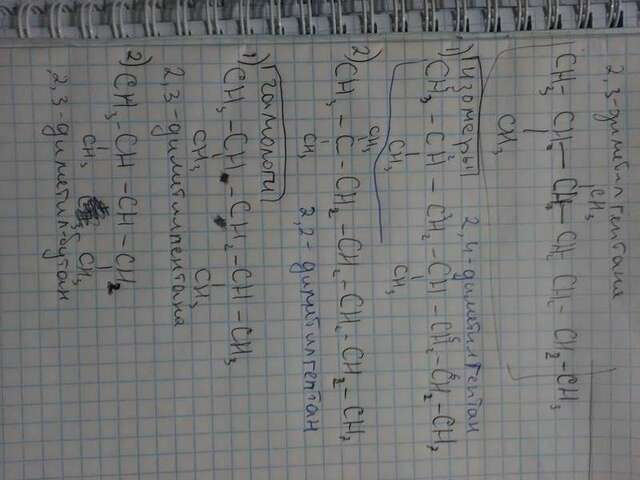 2,3-диметилгептана
CH3
CH3-CH2-CH-CH-CH2-CH2-CH3
CH3
Изомеры
2,4-диметилгептан
1) CH3-CH-CH2-CH-CH2-CH2-CH3
CH3 CH3
CH3
2) CH3-C-CH2-CH2-CH2-CH2-CH3
CH3
2,2-диметилгептан
Гомологи
1) CH3-CH-CH2-CH-CH3
CH3 CH3
2,3-диметилпентана
2) CH3-CH-CH-CH2
CH3 CH3
2,3-диметилбутан